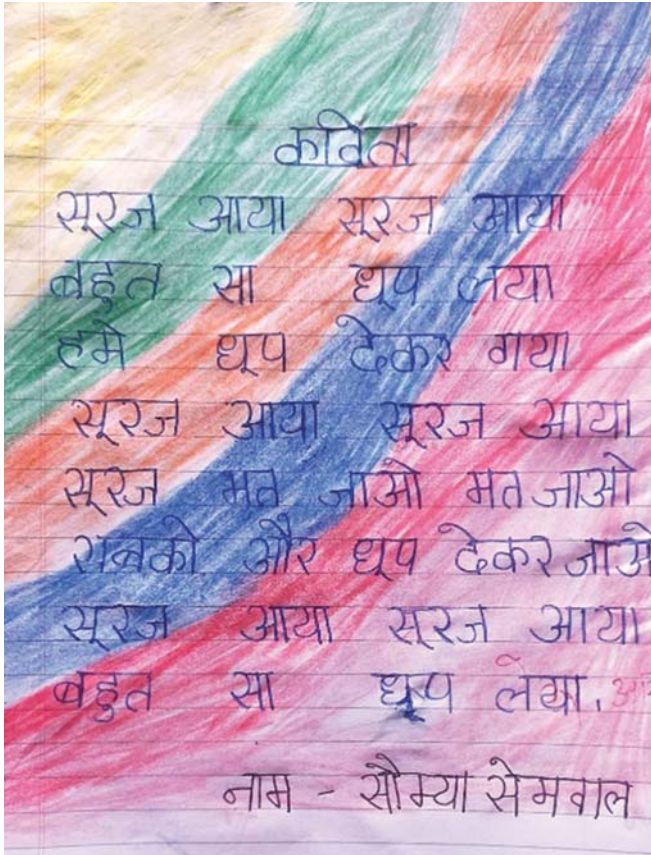 कविता
सूरज आया सूरज आया
बहुत सा धूप लया
हमे धूप देकर गया
सूरज आया सूरज आया
सूरज मत जाओ मत जाओ
सबको और धूप देकर जाओ
सूरज आया सूरज आया
बहुत सा धूप लया.
नाम - सौम्या सेमवाल